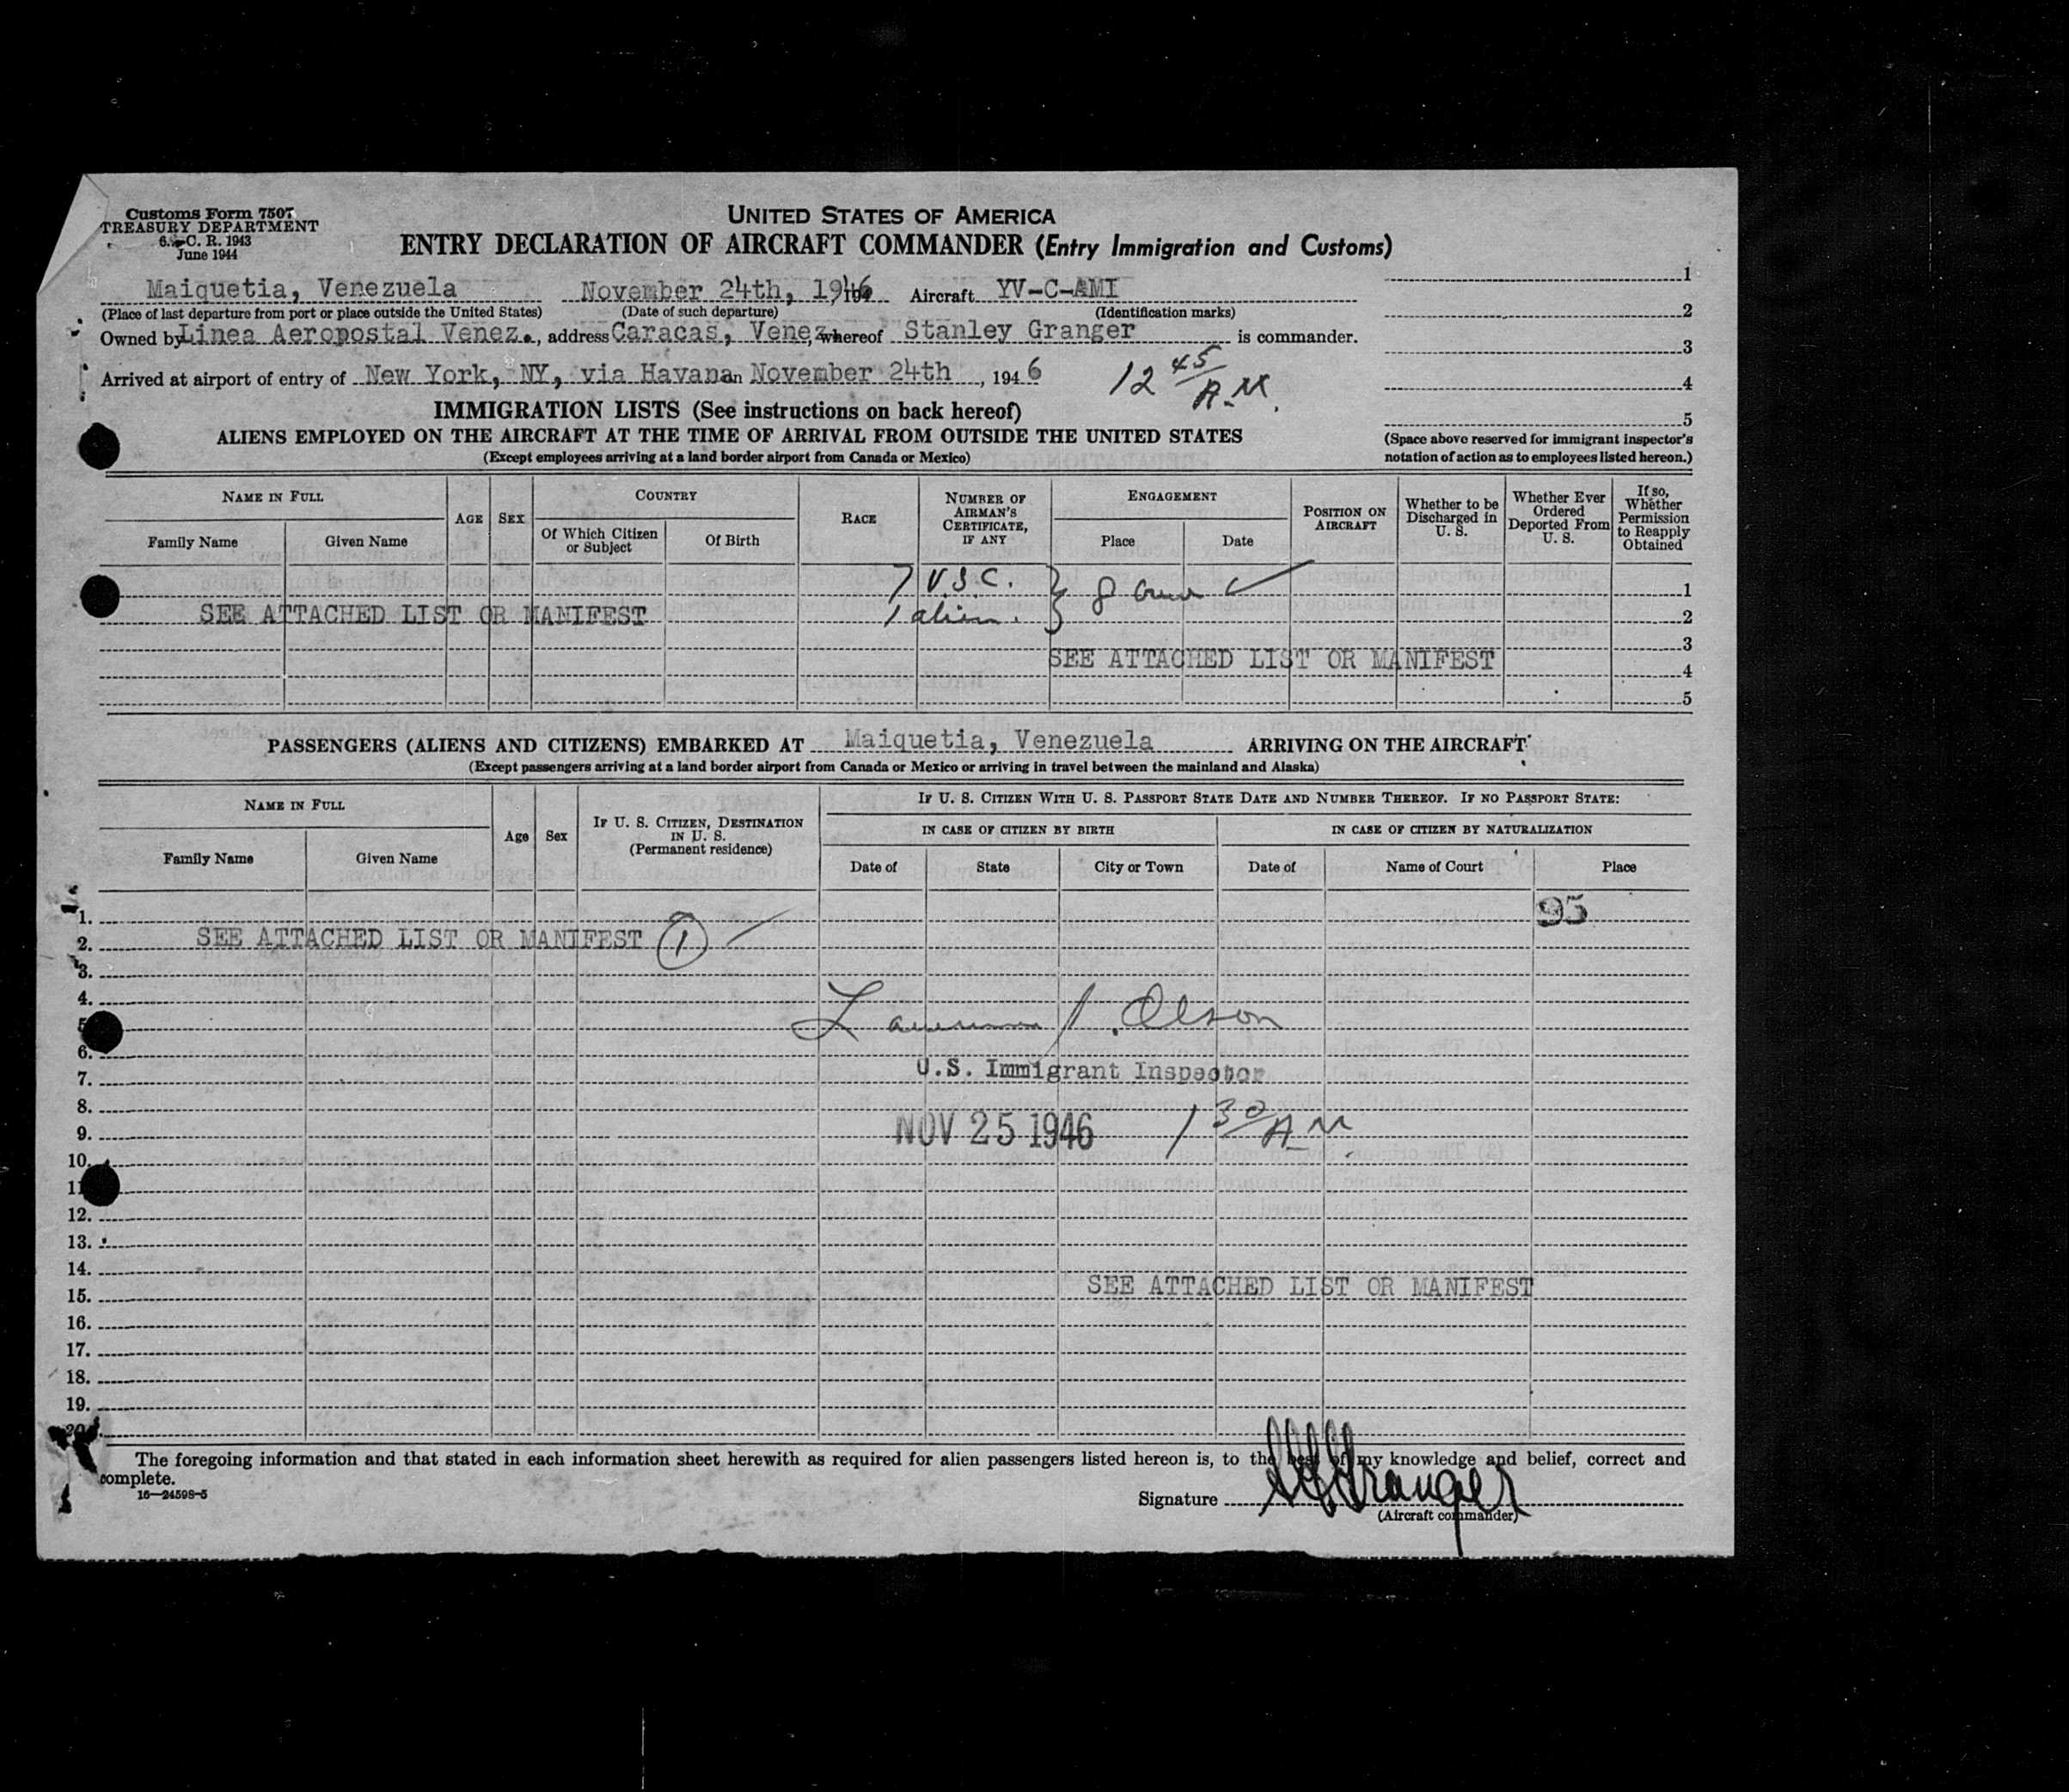 Customs Form 7507
TREASURY DEPARTMENT
C. R. 1943
June 1944
UNITED STATES OF AMERICA
ENTRY DECLARATION OF AIRCRAFT COMMANDER (Entry Immigration and Customs)
Maiquetia, Venezuela November 24th, 1946 Aircraft YV-C-AMI
(Place of last departure from port or place outside the United States) (Date of such departure) (Identification marks)
Owned by Linea Aeropostal Venez., address Caracas, Venez, whereof Stanley Granger is commander.
Arrived at airport of entry of New York, NY, via Havana on November 24th, 1946 12 45/A.M.
1
2
3
4
5
IMMIGRATION LISTS (See instructions on back hereof)
ALIENS EMPLOYED ON THE AIRCRAFT AT THE TIME OF ARRIVAL FROM OUTSIDE THE UNITED STATES
(Except employees arriving at a land border airport from Canada or Mexico)
(Space above reserved for immigrant inspector's
notation of action as to employees listed hereon.)
NAME IN FULL
Family Name
Given Name
AGE
SEX
COUNTRY
Of Which Citizen
or Subject
Of Birth
RACE
NUMBER OF
AIRMAN'S
CERTIFICATE,
IF ANY
ENGAGEMENT
Place
Date
POSITION ON
AIRCRAFT
Whether to be
Discharged in
U. S.
Whether Ever
Ordered
Deported From
U. S.
If so,
Whether
Permission
to Reapply
Obtained
7 U.S.C. } 8 Crew 1
SEE ATTACHED LIST OR MANIFEST 1 alien. 2
3
SEE ATTACHED LIST OR MANIFEST 4
5
PASSENGERS (ALIENS AND CITIZENS) EMBARKED AT Maiquetia, Venezuela ARRIVING ON THE AIRCRAFT
(Except passengers arriving at a land border airport from Canada or Mexico or arriving in travel between the mainland and Alaska)
NAME IN FULL
Family Name
Given Name
Age
Sex
IF U. S. CITIZEN, DESTINATION
IN U. S.
(Permanent residence)
IF U. S. CITIZEN WITH U. S. PASSPORT STATE DATE AND NUMBER THEREOF. IF NO PASSPORT STATE:
IN CASE OF CITIZEN BY BIRTH
IN CASE OF CITIZEN BY NATURALIZATION
Date of
State
City or Town
Date of
Name of Court
Place
1. 95
2. SEE ATTACHED LIST OR MANIFEST 1
3.
4.
5 Olson
6.
7. U.S. Immigrant Inspector
8.
9. NOV 25 1946 1 30/A.M.
10.
11
12.
13.
14.
15. SEE ATTACHED LIST OR MANIFEST
16.
17.
18.
19.
20.
The foregoing information and that stated in each information sheet herewith as required for alien passengers listed hereon is, to the best of my knowledge and belief, correct and
complete.
16—24598-5
Signature Granger
(Aircraft commander)